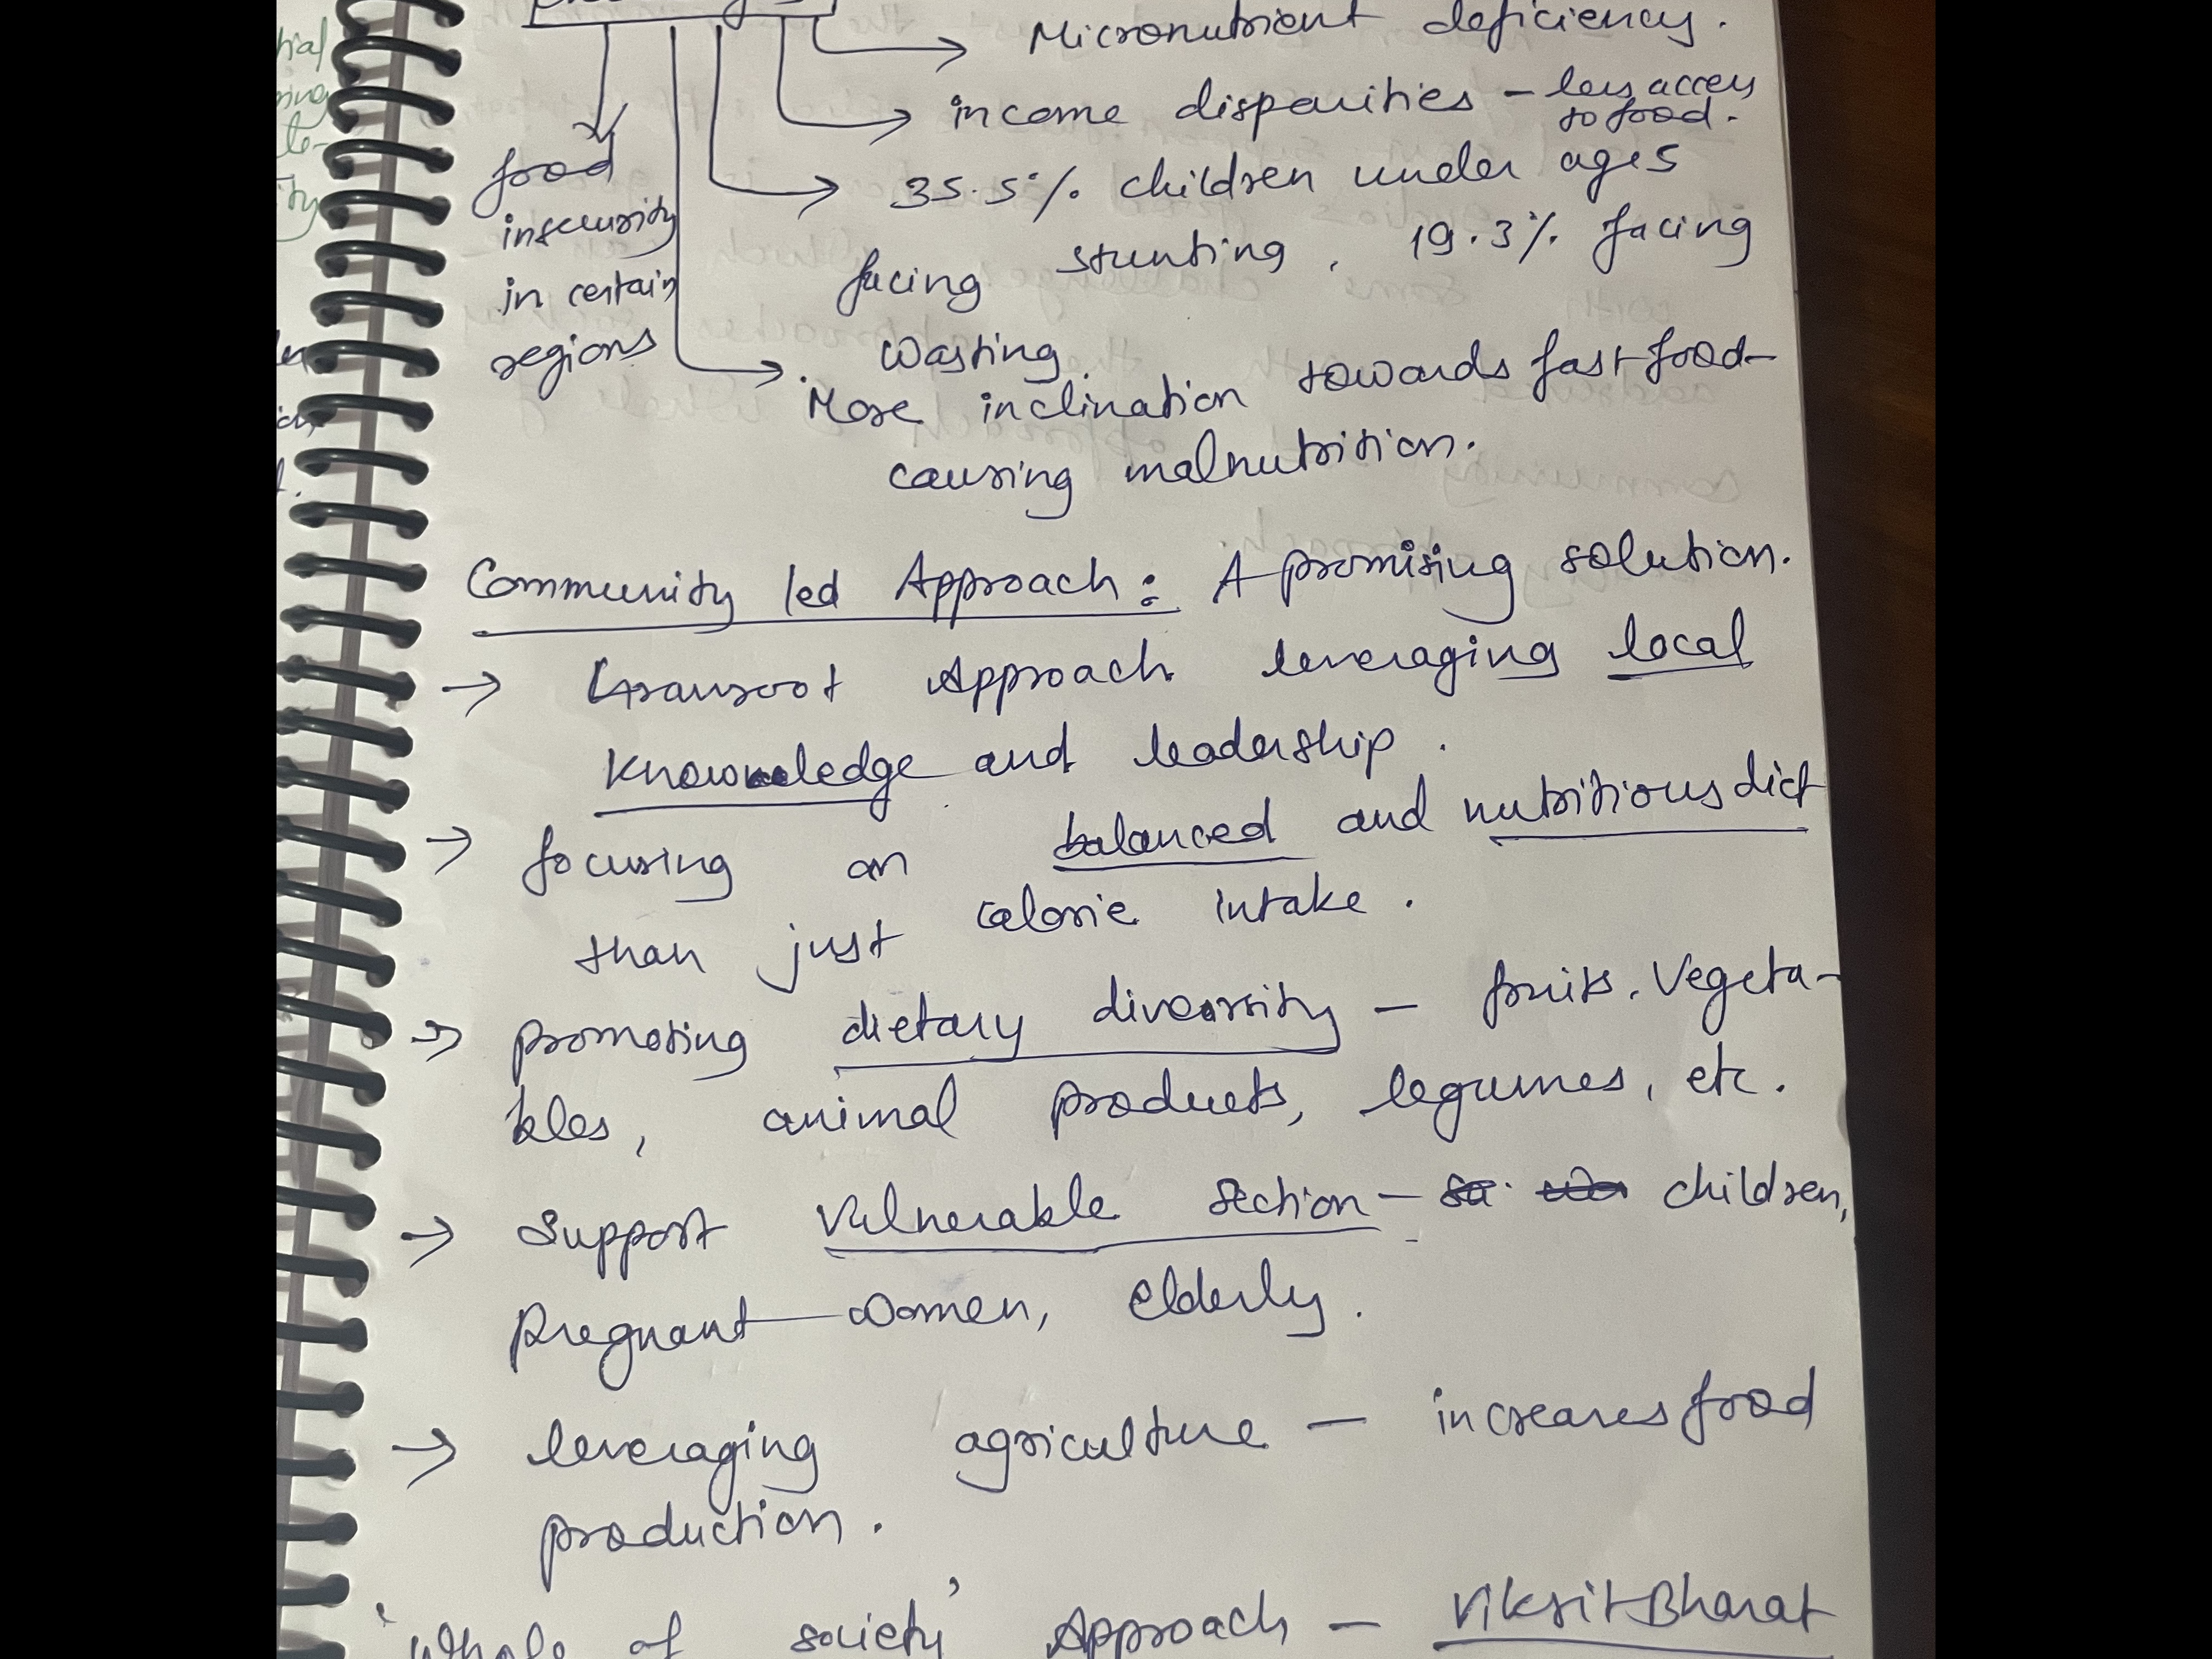 Micronutrient deficiency.
income disparities - less access
to food.
35.5% children under age 5
facing stunting, 19.3% facing
wasting
food
insecurity
in certain
regions
More inclination towards fast food-
causing malnutrition.
Community led Approach: A promising solution.
→ Grassroot Approach leveraging local
knowledge and leadership.
→ focusing on balanced and nutritious diet
than just calorie intake.
→ promoting dietary diversity - fruits, Vegeta-
bles, animal products, legumes, etc.
→ Support Vulnerable section - children,
Pregnant women, elderly.
→ leveraging agriculture - increases food
production.
'Whole of society' Approach - Viksit Bharat